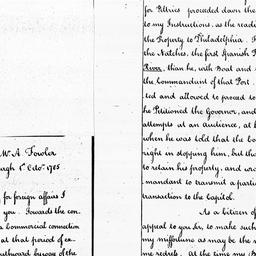 Mr. A. Fowler
urgh 1st Octor. 1785
for foreign affairs I
you. Towards the con
Commercial connection
at that period of ex
outhward bureau of the
for Peltries proceeded down the
to my Instructions, as the readi
the Property to Philadelphia.
the Natches, the first Spanish
River, than he, with Boat and
the Commandant of that Port.
ted and allowed to proceed to
he Petitioned the Governor, and
attempts at an audience, at
when he was told that the Co
right in stopping him, but tha
to retain his property, and wro
mandant to transmit a parti
transaction to the Capitol.
As a Citizen of
appeal to you Sir, to make such
my misfortune as may be the m
me redress. At the time my B